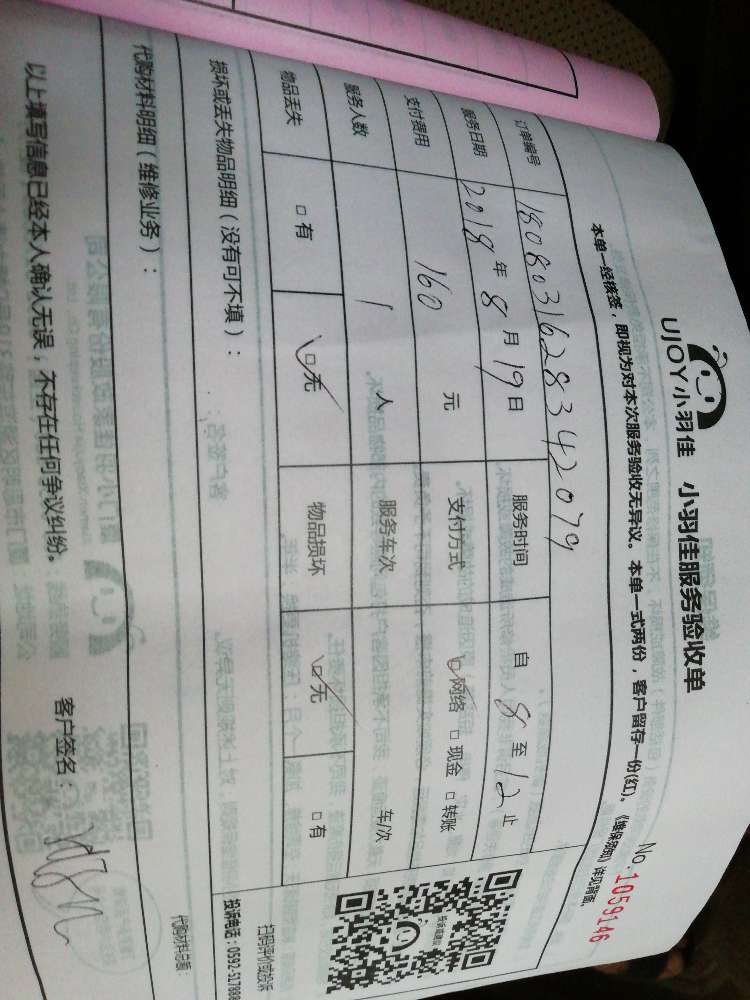 UJOY小羽佳 小羽佳服务验收单
No.1059146
本单一经接签，即视为对本次服务验收无异议。本单一式两份，客户留存一份(红)。《维保须知》详见背面。
订单编号 1808031628342079
服务日期 2018年8月19日 服务时间 自8至12止
支付费用 160元 支付方式 ☑网络 □现金 □转账
服务人数 1人 服务车次 车/次
物品丢失 □有 ☑无 物品损坏 ☑无 □有
损坏或丢失物品明细（没有可不填）：
扫码评价或投诉
投诉电话：0592-517888
代购材料明细（维修业务）：
代购材料总额：
以上填写信息已经本人确认无误，不存在任何争议纠纷。
客户签名：